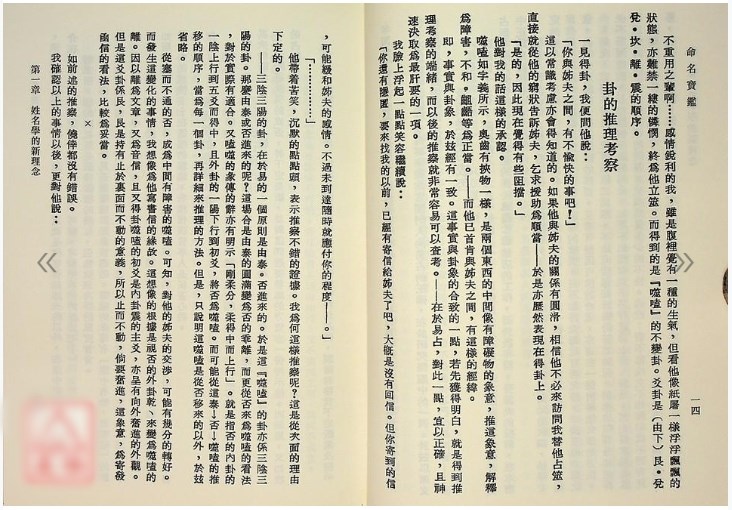 命名寶鑑
一四
不重用之輩啊……感情銳利的我，雖是腹裡覺有一種的生氣，但看他像紙屠一樣浮浮飄飄的
狀態，亦難禁一縷的憐憫，終爲他立筮。而得到的是『噬嗑』的不變卦。爻卦是（由下）艮・兌
兌・坎・離・震的順序。
卦的推理考察
一見得卦，我便問他說：
「你與姊夫之間，有不愉快的事吧！」
這以常識考慮亦會得知道的。如果他與姊夫的關係有圓滑，相信他不必來訪問我替他占筮，
直接就從他的窮狀告訴姊夫，乞求援助爲順當——於是亦歷然表現在得卦上。
「是的，因此現在覺得有些阻擋。」
他對我的話這樣的承認。
噬嗑如字義所示，奥齒有挾物一樣，是兩個東西的中間像有障礙物的象意，推這象意，解釋
爲障害，不和，齟齬等爲正當。——而他已首肯與姊夫之間，有這樣的經緯。
即，事實與卦象，於玆經有一致。這事實與卦象的合致的一點，若先獲得明白，就是得到推
理考察的端緒，而以後的推察就非常容易可以查考。——在於易占，對此一點，宜以正確，且神
速決取爲最肝要的一項。
我臉上浮起一點點笑容繼續說：
「你還有隱匿，要來找我的以前，已經有寄信給姊夫了吧，大槪是沒有回信。但你寄到的信
，可能緩和姊夫的感情。不過未到達隨時就應付你的程度——。」
「…………」
他帶着苦笑，沉默的點點頭，表示推察不錯的證據。我爲何這樣推察呢？這是從次面的理由
下定的。
——三陰三陽的卦，在於易的一個原則是由泰。否進來的。於是這『噬嗑』的卦亦係三陰三
陽的卦。那麼由泰或否進來的呢？這場合是由泰的圓滿變爲否的乖離，而更從否來爲噬嗑的看法
，對於實際有適合。又噬嗑的彖傳的辭亦有明示「剛柔分，柔得中而上行」。就是指否的內卦的
一陰上行到五爻而得中，且外卦的一陽下行到初爻，將否爲噬嗑。而可能從泰↓否↓噬嗑的推
移的順序，當爲每一個卦，再詳細來推理的方法。但是，只說明這噬嗑是從否移來的以外，於玆
省略。
從塞而不通的否，成爲中間有障害的噬嗑。可知，對他的姊夫的交渉，可能有幾分的轉好。
而發生這變化的事情，我想像爲他寫書信的緣故。這想像的根據是視否的外卦乾、來變爲噬嗑的
離。因以離爲文章，又爲音信，且又得卦噬嗑的初爻是內卦震的主爻，亦呈有向外奮進的外觀。
但是這爻卦係艮，艮是持有止於裏面而不動的意義，所以止而不動，倘要奮進，這象意，爲寄發
函信的看法，比較爲妥當。
×
如前述的推察，僥倖都沒有錯誤。
我確認以上的事情以後，更對他說：
第一章 姓名學的新理念